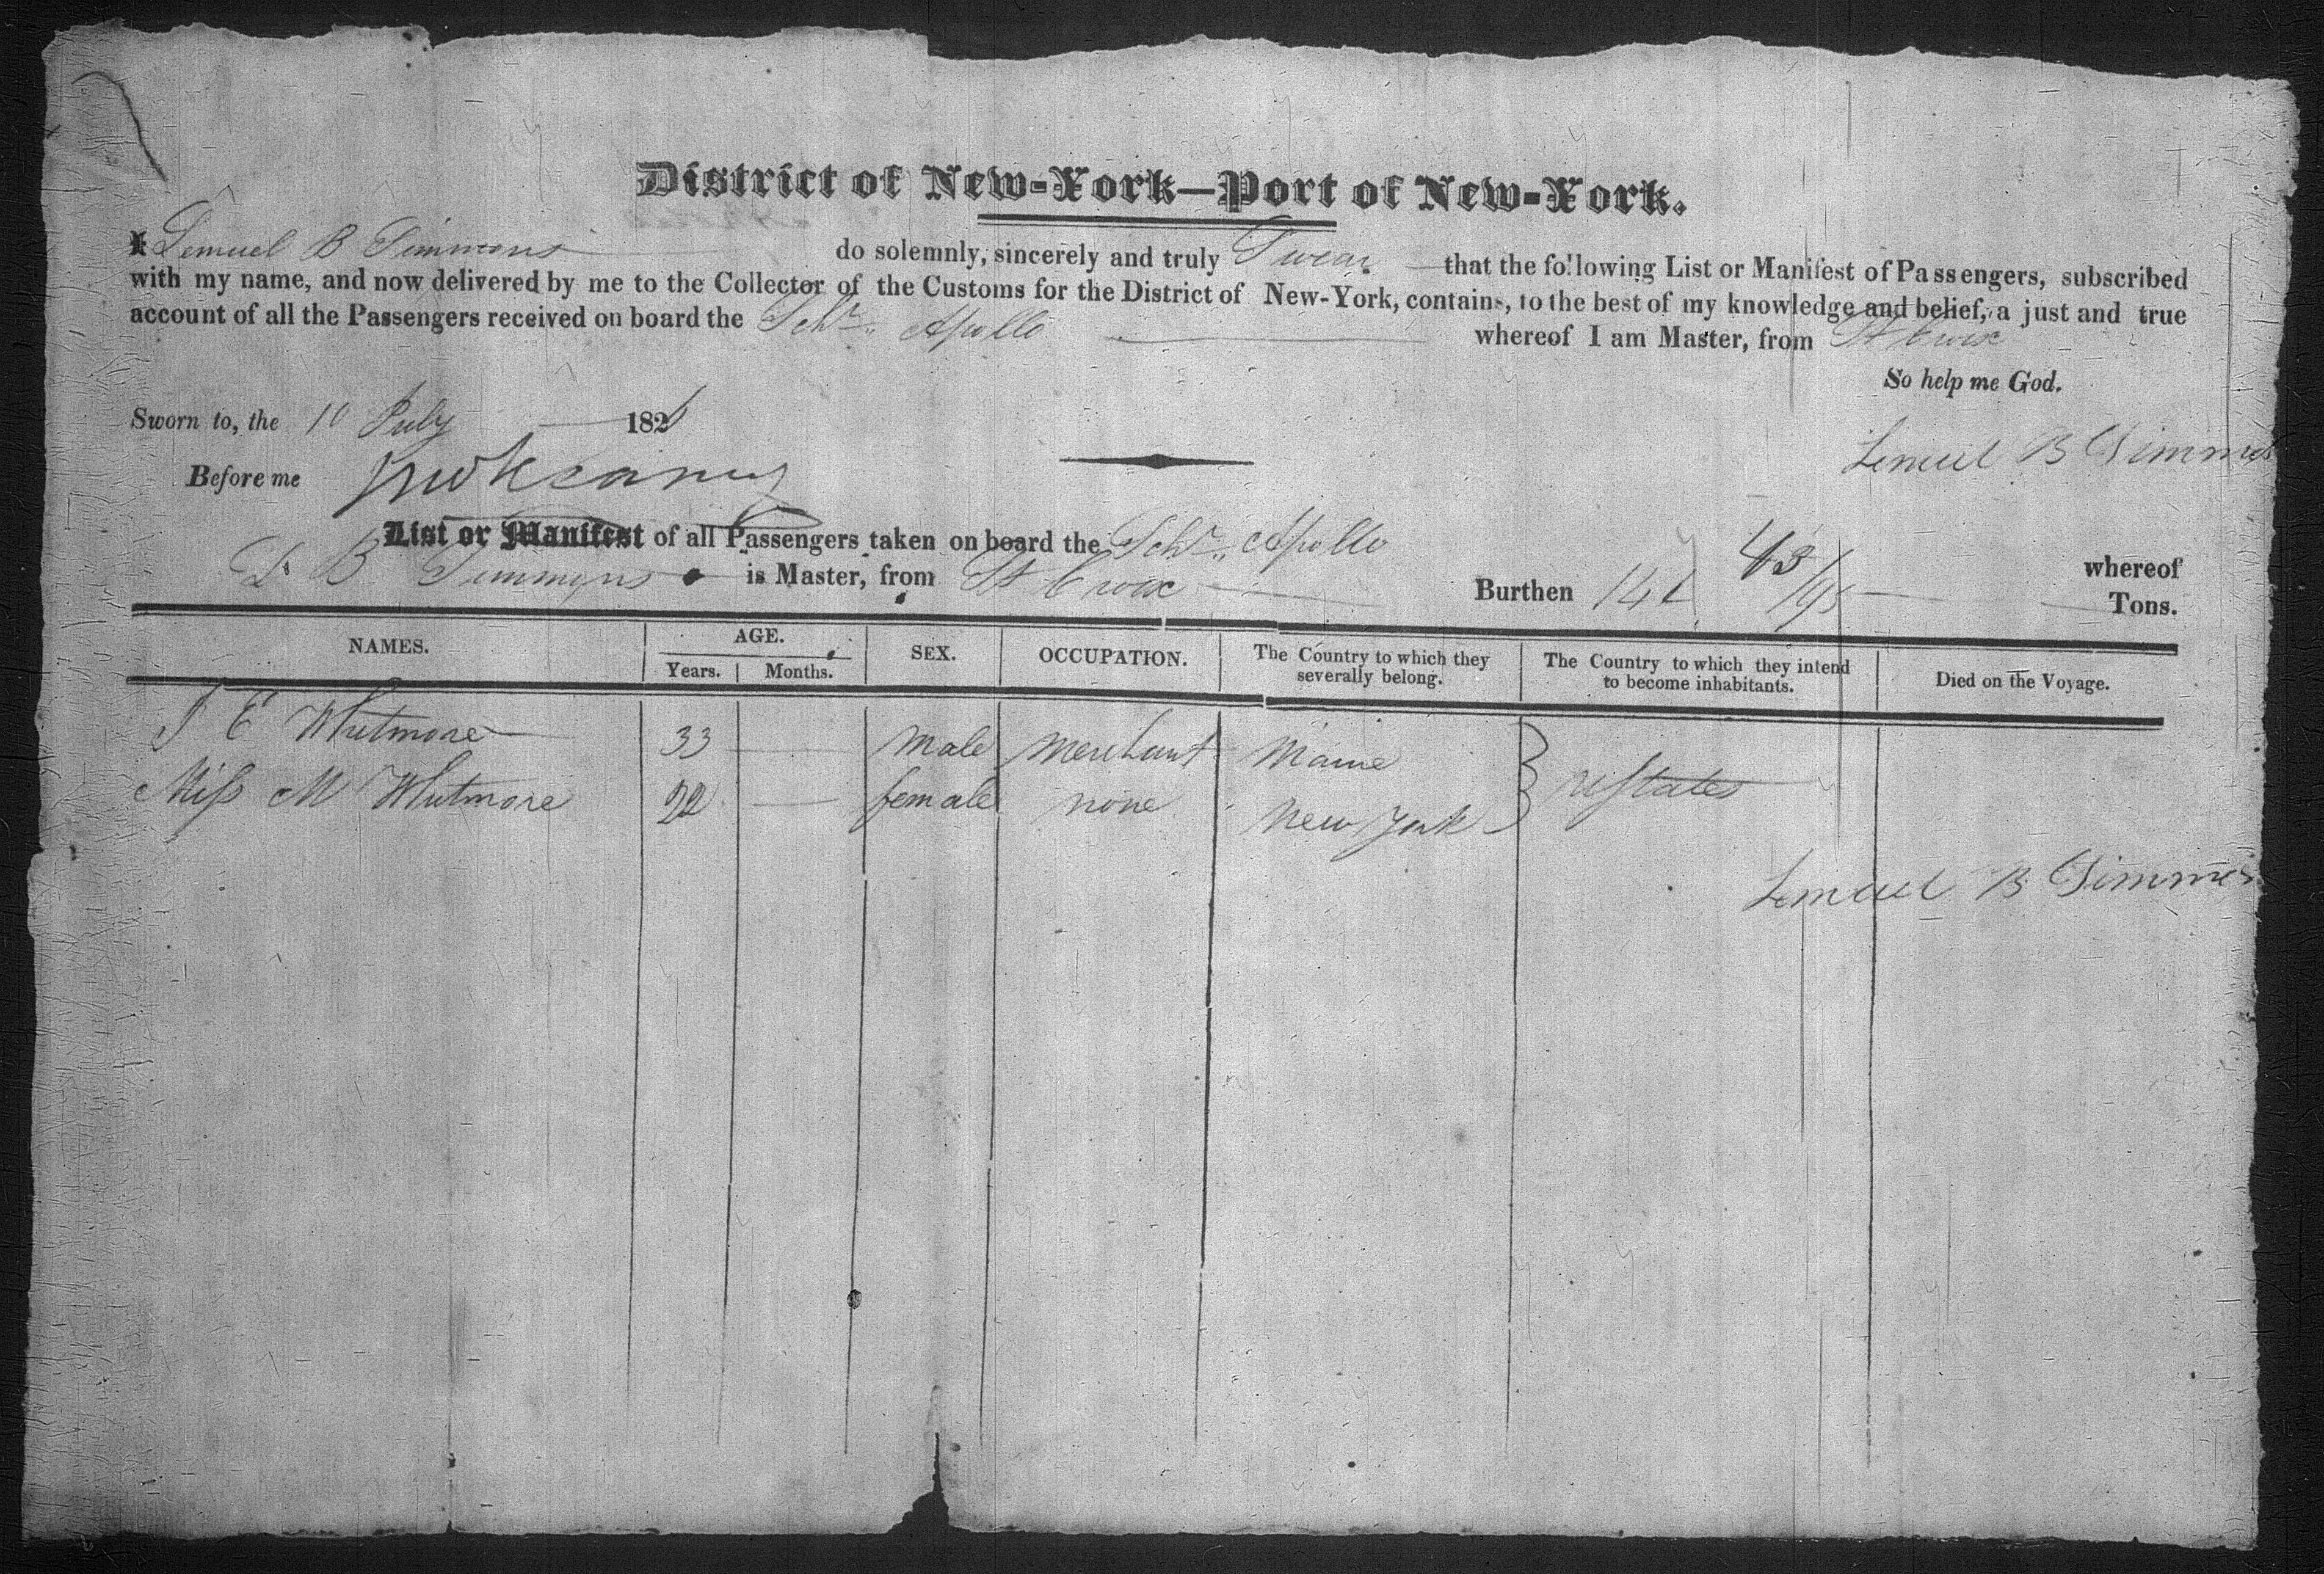 District of New-York—Port of New-York.
I Lemuel B Simmons do solemnly, sincerely and truly Swear that the following List or Manifest of Passengers, subscribed
with my name, and now delivered by me to the Collector of the Customs for the District of New-York, contains, to the best of my knowledge and belief, a just and true
account of all the Passengers received on board the Schr. Apollo whereof I am Master, from St Croix
So help me God.
Sworn to, the 10 July 182
Before me
Lemuel B Simmons
List or Manifest of all Passengers taken on board the Schr. Apollo whereof
L B Simmons is Master, from St Croix Burthen 141 43/95 Tons.
NAMES. AGE. SEX. OCCUPATION. The Country to which they severally belong. The Country to which they intend to become inhabitants. Died on the Voyage.
Years. Months.
E Whitmore 33 male merchant Maine
Miss M Whitmore 22 female none New York
UStates
Lemuel B Simmons